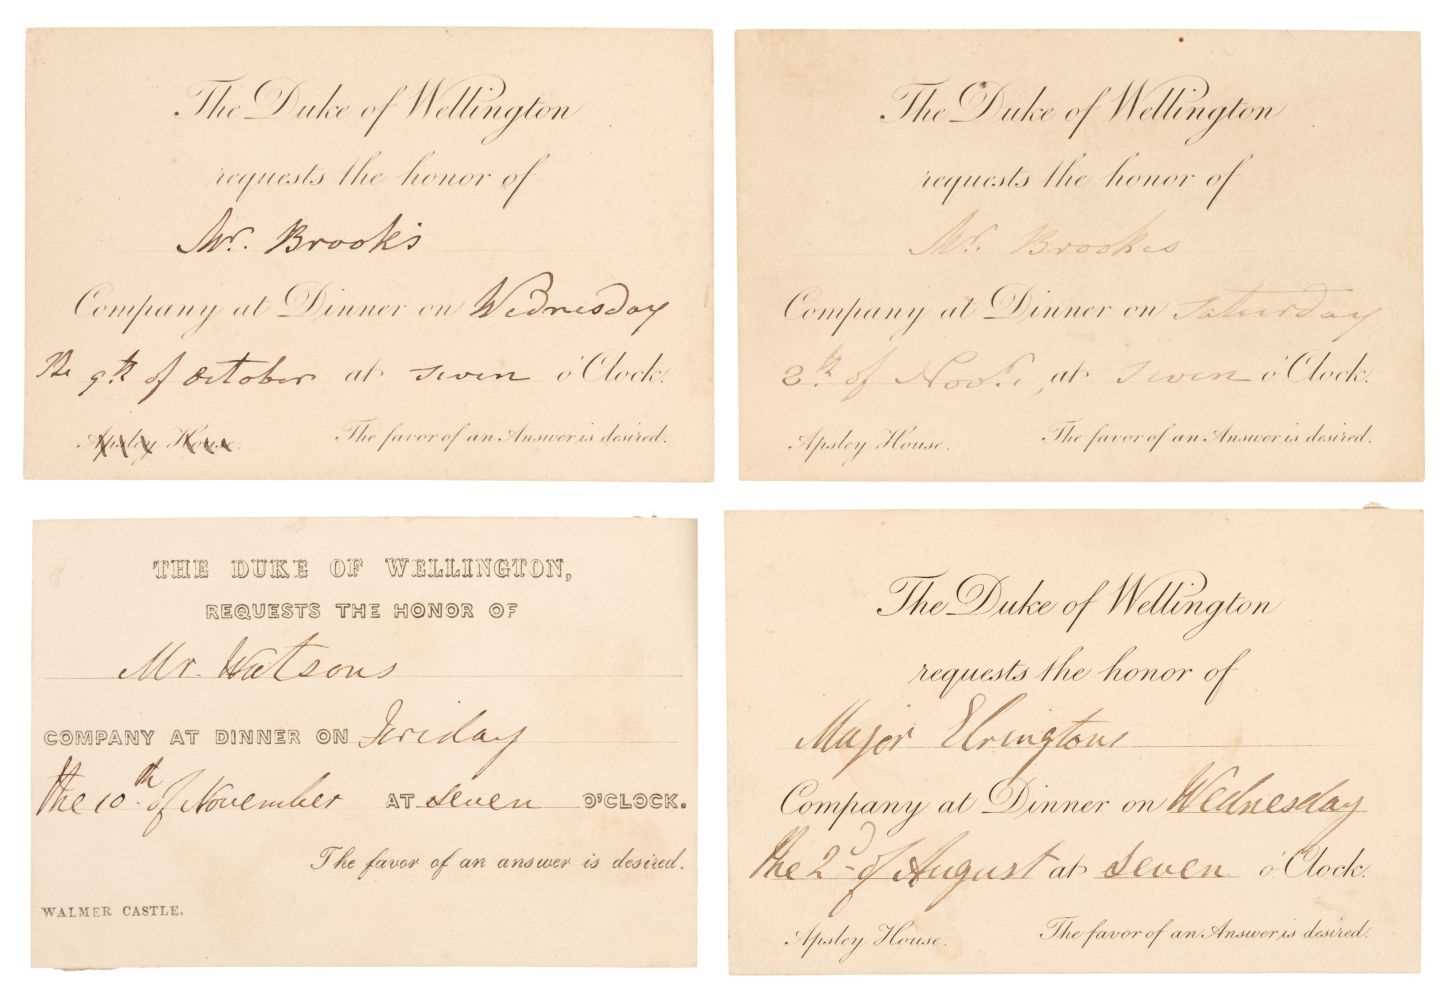 The Duke of Wellington
requests the honor of
Mr. Brook's
Company at Dinner on Wednesday
The 9th of October at seven o'Clock.
Apsley House. The favor of an Answer is desired.
The Duke of Wellington
requests the honor of
Mr. Brookes
Company at Dinner on Saturday
8th of Novr., at seven o'Clock.
Apsley House. The favor of an Answer is desired.
THE DUKE OF WELLINGTON,
REQUESTS THE HONOR OF
Mr. Watsons
COMPANY AT DINNER ON Friday
the 10th of November AT seven O'CLOCK.
The favor of an answer is desired.
WALMER CASTLE.
The Duke of Wellington
requests the honor of
Major Elringtons
Company at Dinner on Wednesday
the 2d of August at seven o'Clock.
Apsley House. The favor of an Answer is desired.